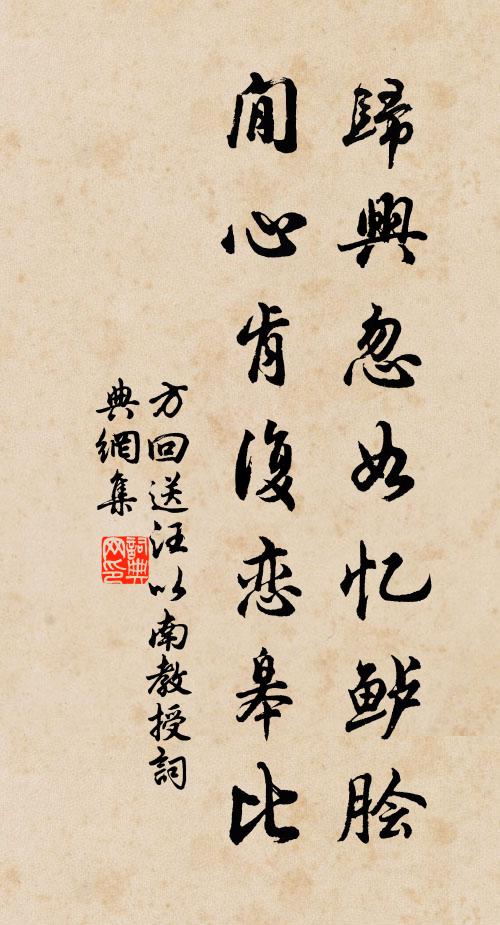 歸興忽如忆鲈脍
閒心肯復恋皋比
方回送汪以南教授詞
典網集
詞典網印